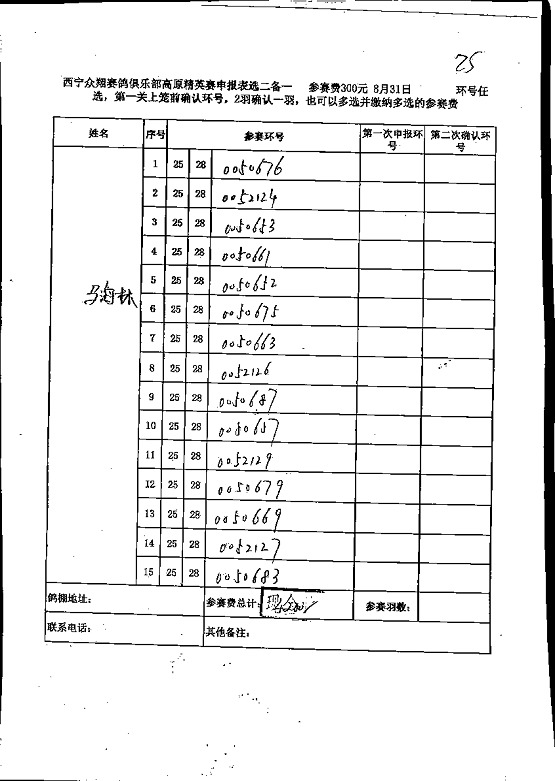 25
西宁众翔赛鸽俱乐部高原精英赛申报表选二备一 参赛费300元 8月31日 环号任
选，第一关上笼前确认环号，2羽确认一羽，也可以多选并缴纳多选的参赛费
姓名 序号 参赛环号 第一次申报环号 第二次确认环号
马海林
1 25 28 0050676
2 25 28 0052124
3 25 28 0050653
4 25 28 0050661
5 25 28 0050652
6 25 28 0050675
7 25 28 0050663
8 25 28 0052126
9 25 28 0050687
10 25 28 0050657
11 25 28 0052129
12 25 28 0050679
13 25 28 0050669
14 25 28 0052127
15 25 28 0050683
鸽棚地址： 参赛费总计： 参赛羽数：
联系电话： 其他备注：